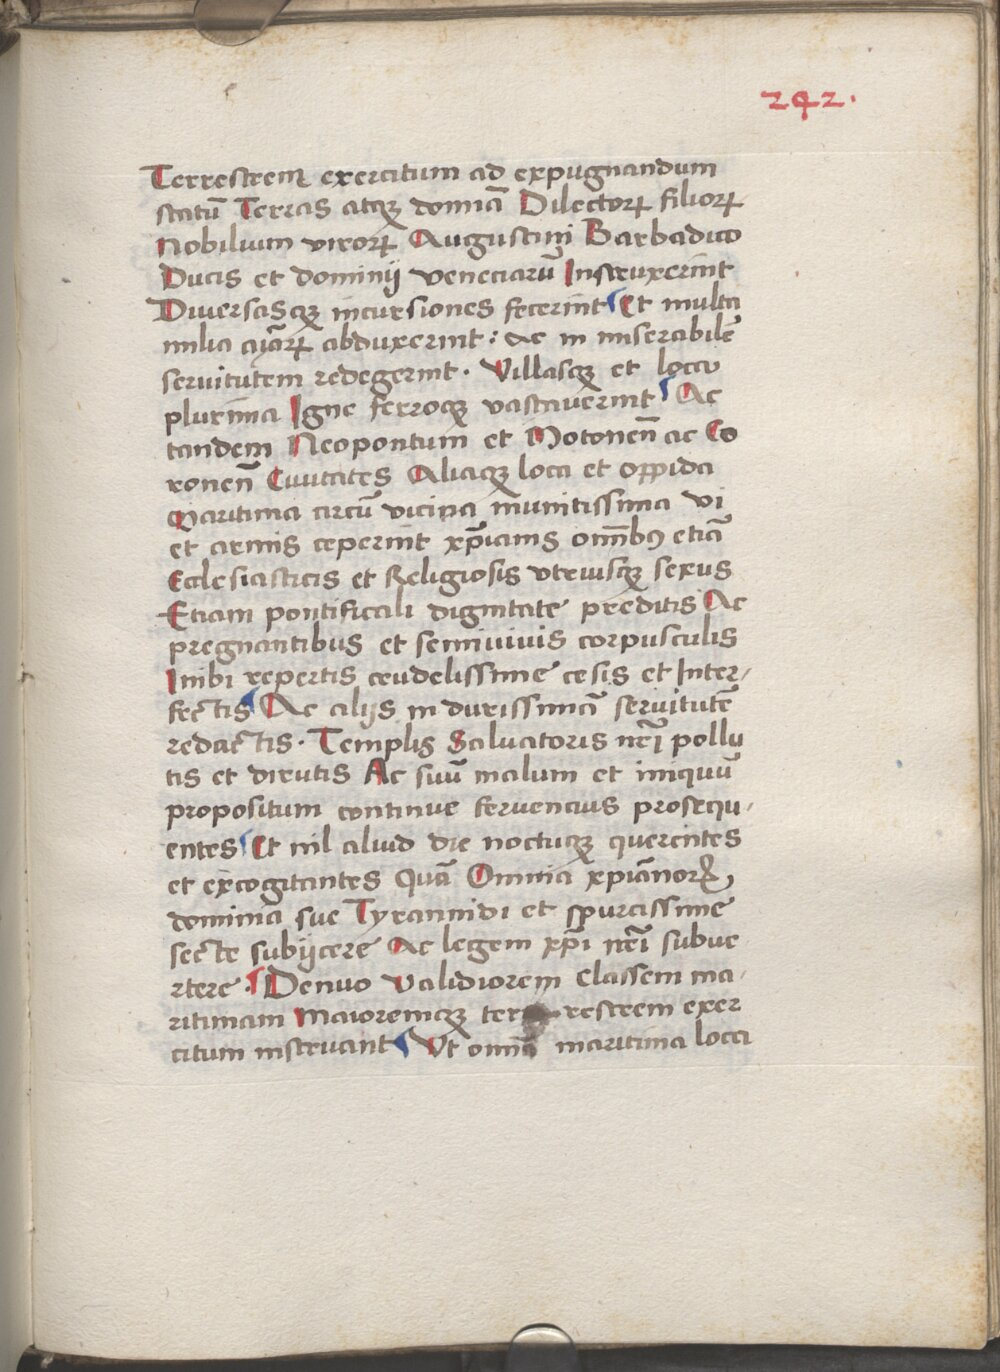 242.
Terrestrem exercitum ad expugnandum
statū Terras atqꝫ domiā Dilectoꝝ filioꝝ
Nobilium viroꝝ Augustini Barbadico
Ducis et dominij venetiarū Instruxerint
Diuersasqꝫ incursiones fecerint Et multa
milia aīaꝝ abduxerint: ac in miserabilē
seruitutem redegerint. Villasqꝫ et loca
plurima Igne ferroqꝫ vastauerint Ac
tandem Neopontum et Motonen̄ ac Co
ronen̄ Ciuitates Aliaqꝫ loca et oppida
Maritima circū vicina munitissima vi
et armis ceperint xp̄ianis omībꝯ etiā
Ecclesiasticis et Religiosis vtriusqꝫ sexus
Etiam pontificali dignitate preditis Ac
pregnantibus et semiuiuis corpusculis
Inibi repertis crudelissime cesis et Inter-
fectis Ac alijs in durissimā seruitutē
redactis. Templis Saluatoris nr̄i pollu
tis et dirutis Ac suū malum et iniquū
propositum continue feruencius prosequ-
entes Et nil aliud die noctuqꝫ querentes
et excogitantes Quā Omnia xpianoꝝ,
dominia sue Tyrannidi et spurcissime
secte subijcere Ac legem xp̄i nr̄i subue
rtere. Denuo validiorem classem ma-
ritimam Maioremqꝫ ter restrem exer
citum instruant Vt omīa maritima loca